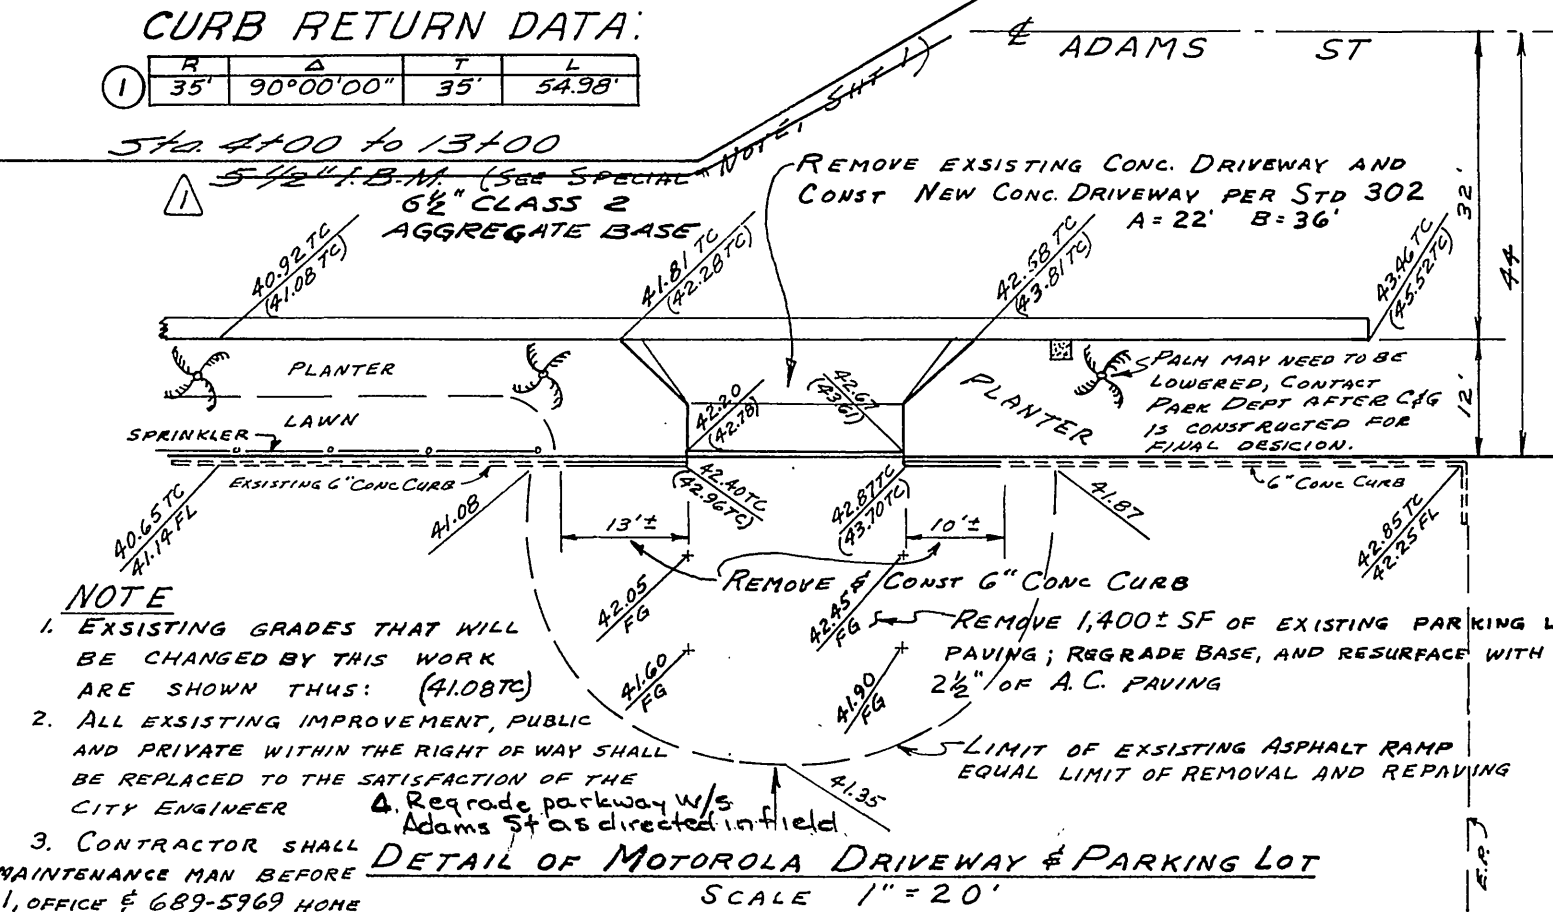 CURB RETURN DATA:
R Δ T L
1 35' 90°00'00" 35' 54.98'
℄ ADAMS ST
Sta. 4+00 to 13+00
5 1/2" I.B.M. (SEE SPECIAL NOTE, SHT 1)
1
6½" CLASS 2
AGGREGATE BASE
REMOVE EXSISTING CONC. DRIVEWAY AND
CONST NEW CONC. DRIVEWAY PER STD 302
A = 22' B = 36'
32'
44
12'
40.92 TC
(41.08 TC)
41.81 TC
(42.28 TC)
42.58 TC
(43.81 TC)
43.46 TC
(45.52 TC)
PLANTER
LAWN
SPRINKLER
42.20
(42.78)
42.67
(43.61)
PLANTER
PALM MAY NEED TO BE
LOWERED, CONTACT
PARK DEPT AFTER C&G
IS CONSTRUCTED FOR
FINAL DESICION.
EXSISTING 6" CONC CURB
6" CONC CURB
40.65 TC
41.14 FL
41.08
42.40 TC
(42.96 TC)
42.87 TC
(43.70 TC)
41.87
42.85 TC
42.25 FL
13'±
10'±
REMOVE & CONST 6" CONC CURB
42.05
FG
42.45
FG
41.60
FG
41.90
FG
REMOVE 1,400± SF OF EXISTING PARKING L
PAVING; REGRADE BASE, AND RESURFACE WITH
2½" OF A.C. PAVING
LIMIT OF EXSISTING ASPHALT RAMP
EQUAL LIMIT OF REMOVAL AND REPAVING
41.35
NOTE
1. EXSISTING GRADES THAT WILL
BE CHANGED BY THIS WORK
ARE SHOWN THUS: (41.08TC)
2. ALL EXSISTING IMPROVEMENT, PUBLIC
AND PRIVATE WITHIN THE RIGHT OF WAY SHALL
BE REPLACED TO THE SATISFACTION OF THE
CITY ENGINEER
4. Regrade parkway w/s
Adams St as directed in field.
3. CONTRACTOR SHALL
MAINTENANCE MAN BEFORE
1, OFFICE & 689-5969 HOME
DETAIL OF MOTOROLA DRIVEWAY & PARKING LOT
SCALE 1" = 20'
E.P.